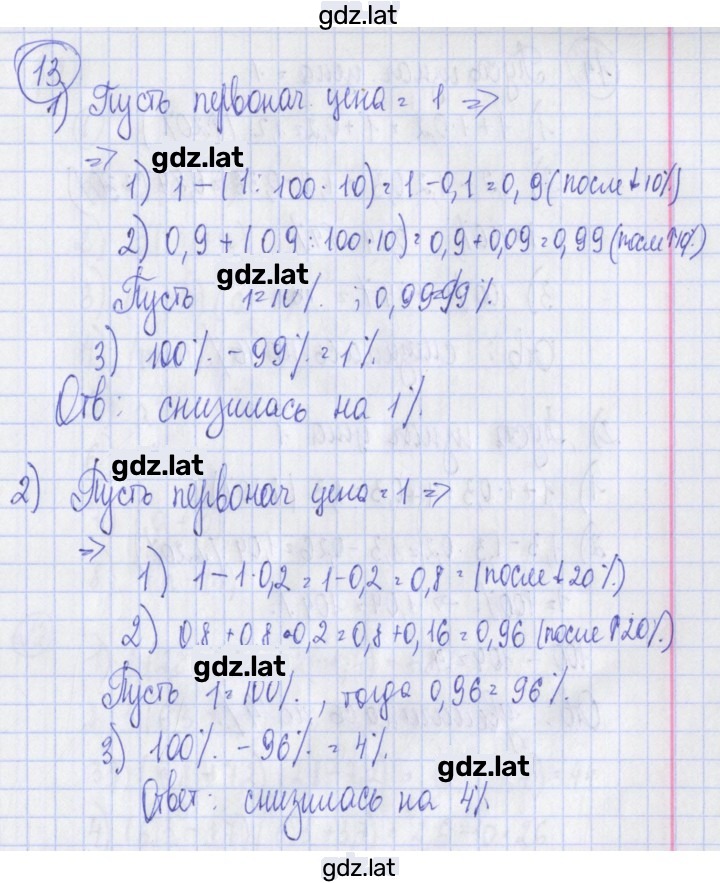 gdz.lat
13
1) Пусть первонач. цена = 1 =>
=> gdz.lat
1) 1 - (1 : 100 · 10) = 1 - 0,1 = 0,9 (после ↓ 10%)
2) 0,9 + (0.9 : 100 · 10) = 0,9 + 0,09 = 0,99 (посл ↑ 10%)
gdz.lat
Пусть 1 = 10 %. ; 0,99 = 99 %.
3) 100 %. - 99 %. = 1 %.
Отв: снизилась на 1 %.
gdz.lat
2) Пусть первонач цена = 1 =>
=>
1) 1 - 1 · 0,2 = 1 - 0,2 = 0,8 = (после ↓ 20 %.)
2) 0.8 + 0.8 · 0,2 = 0,8 + 0,16 = 0,96 (после ↑ 20%.)
gdz.lat
Пусть 1 = 100 %. , тогда 0,96 = 96 %.
3) 100 %. - 96 %. = 4 %.
gdz.lat
Ответ: снизилась на 4 %.
gdz.lat